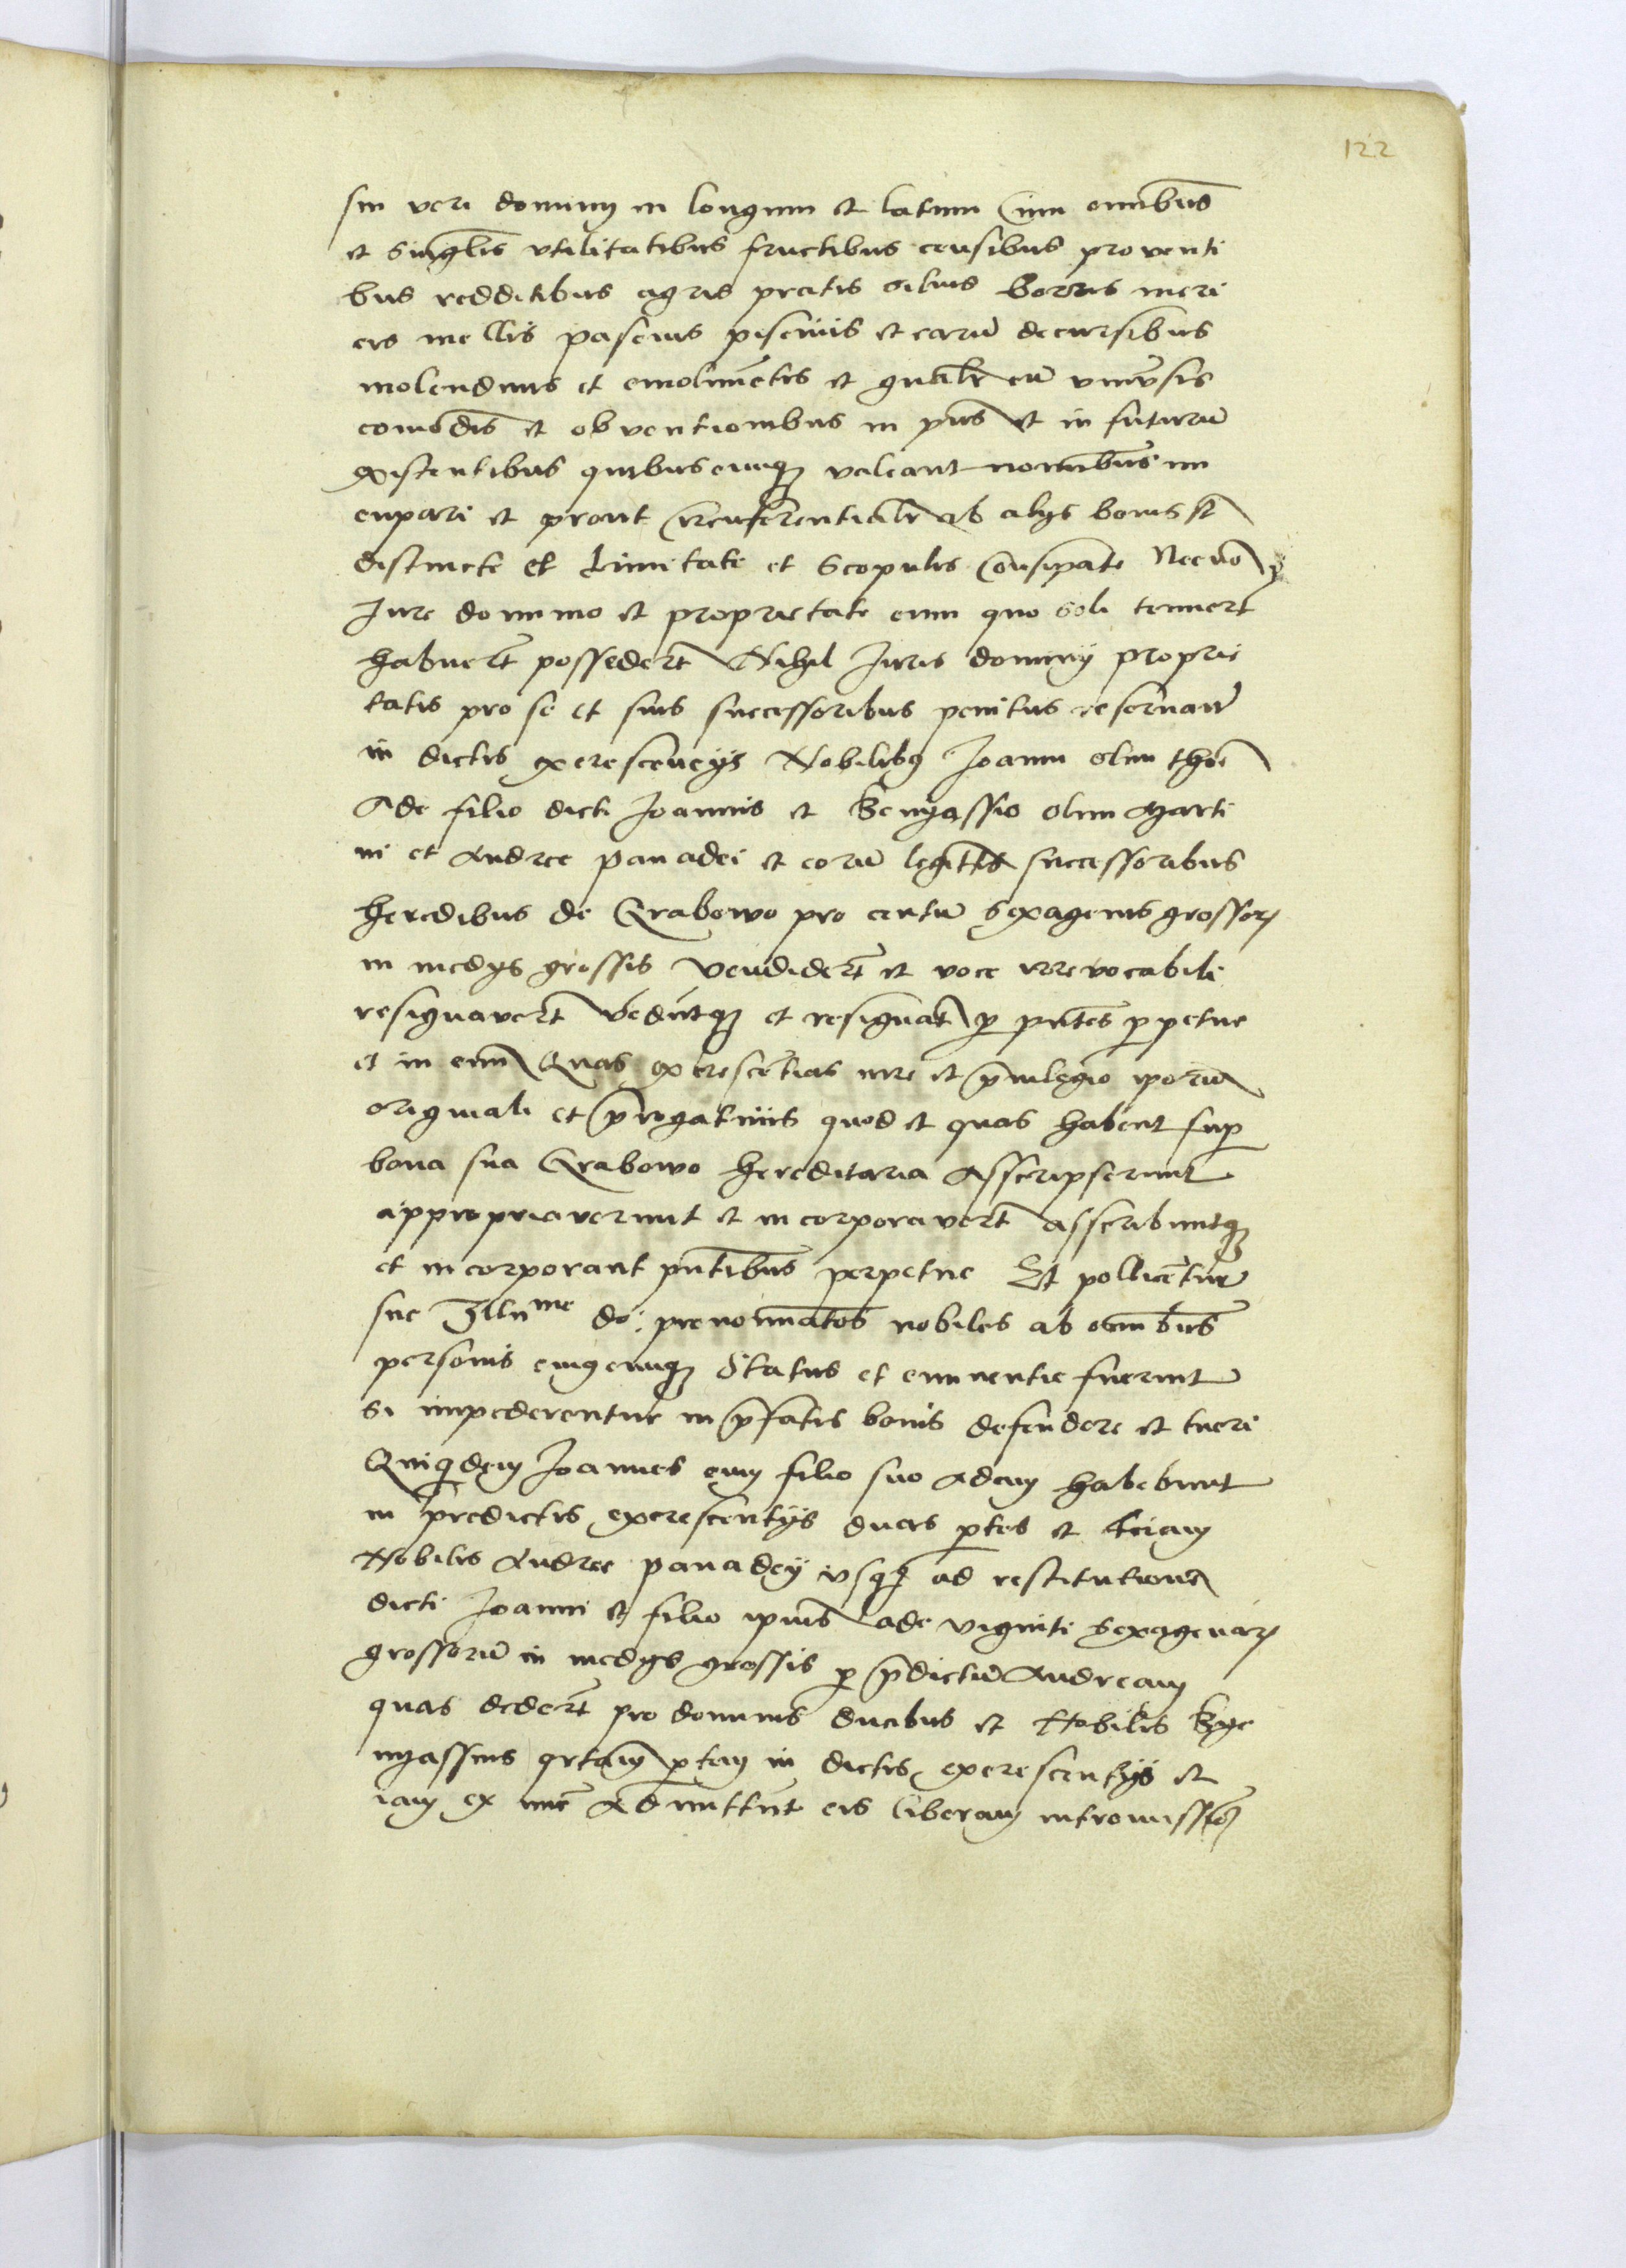 122
sui veri dominij in longum et latum Cum omnibus
et singlis vtilitatibus fructibus censibus proventi
bus redditibus agris pratis siluis borris meri
cis mellis pascuis piscinis et earu decursibus
molendinis et emolimetis et gnalr cu vniusis
comodis et obventionibus in pns et in futuru
existentibus quibuscunqz valeant nominibus nu
cupari et prout Circuferentialr ab alijs bonis st
distincte et Limitate et Scopulis Consipate Necno
Iure dominio et proprietate cum quo soli tenuert
habuert possedert Nihil Iuris dominij proprie
tatis pro se et suis successoribus penitus reseruan
in dictis excrescencijs Nobilibq Joanni olim thoe
Ade filio dicti Joannis et olim Marti
ni et Andree panadei et eoru legittis successoribus
heredibus de Grabowo pro centu sexagenis grossor
in medijs grossis vendidert et voce irrevocabili
resignavert vedutqz et resignat p pntes ppetue
et in eum Quas excrescetias iure et puilegio iporu
originali et prerogatiuis quod et quas habent sup
bona sua Grabowo hereditaria Asscripserunt
appropriaverunt et incorporavert asscribuntqz
et incorporant pntibus perpetue Et pollicetur
sue Illume do: prenominatos nobiles ab omnibus
personis cuiqcunqz status et eminentie fuerint
si impederentur in pfatis bonis defendere et tueri
Quiqdem Joannes cum filio suo Adam habebunt
in predictis excrescentijs duas ptes et tciam
Nobilis Andree panadey vsqz ad restitutione
dicti Joanni et filio ipius ade viginti sexagenar
grossoru in medijs grossis p pdictu Andream
quas dedert pro dominis ducibus et Nobilis
qrtam ptem in dictis excrescentijs et
iam ex nuc Admittut eis liberam intromissioe